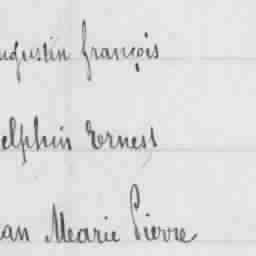 ugustin françois
elphin Ernest
ean Mearie Pierre